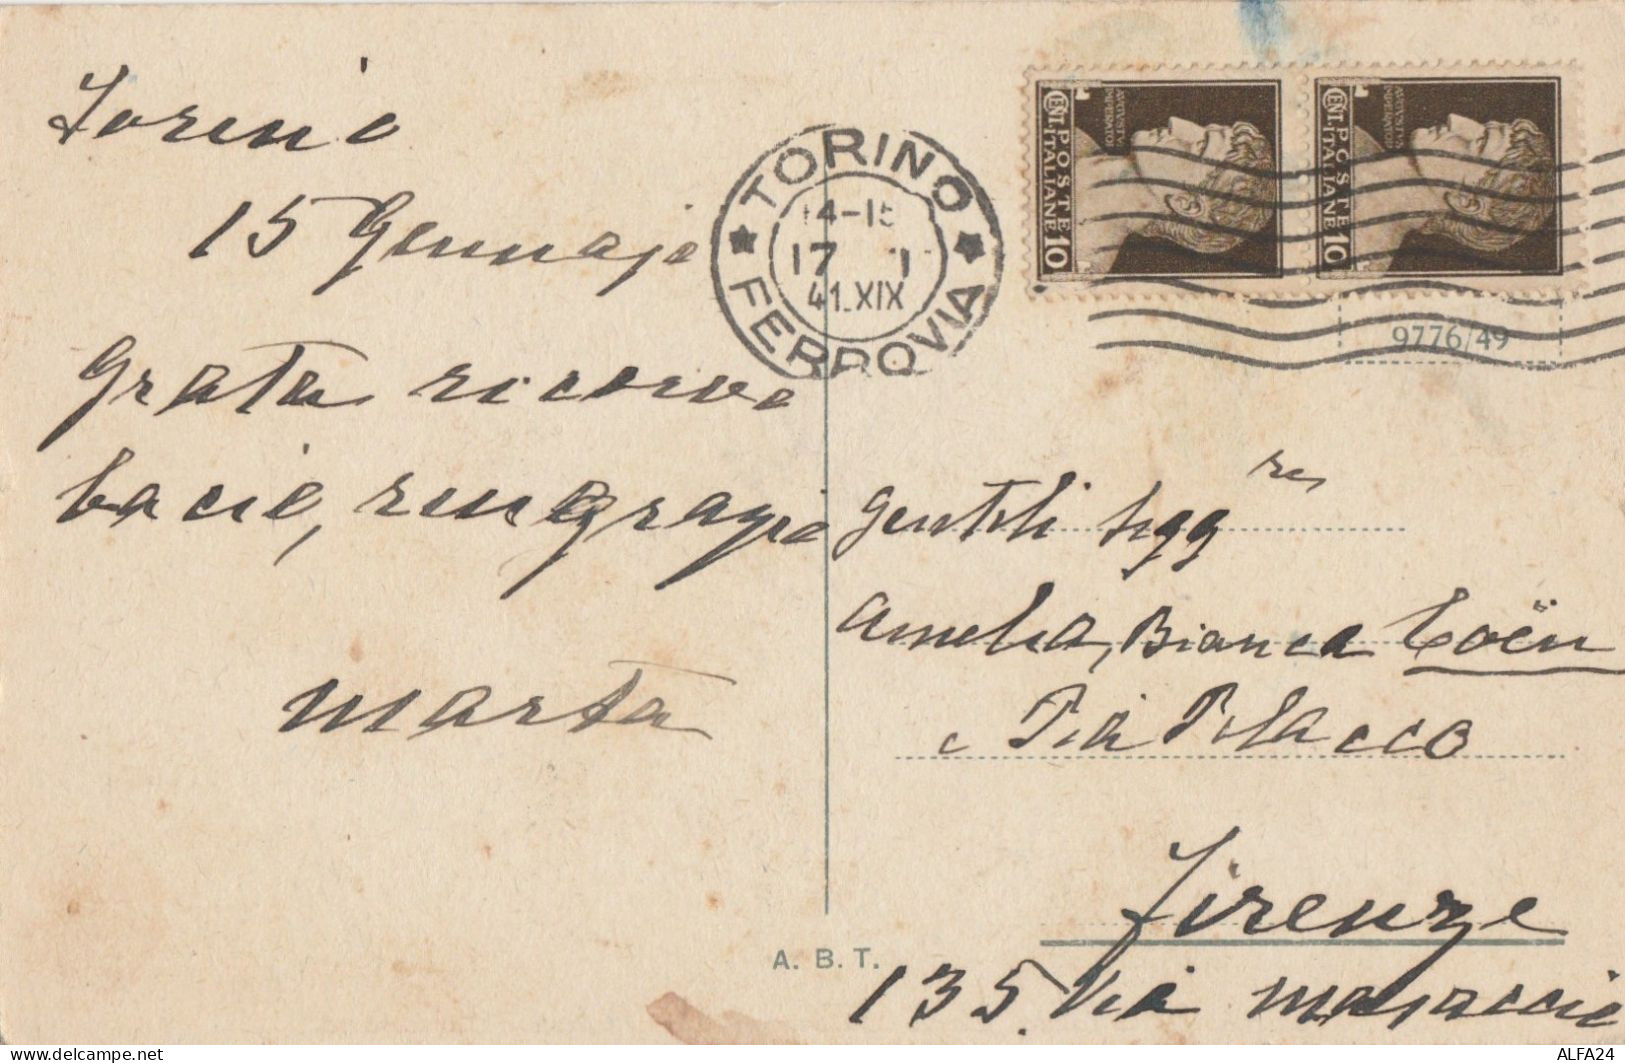 Torino
15 Gennajo
Grata ricordo
bacio, ringrazio
Marta
TORINO
14-15
17 1
41.XIX
FERROVIA
CENT. 10
POSTE ITALIANE
CENT. 10
POSTE ITALIANE
9776/49
Gentili Sigg re
Amelia, Bianca Coën
e Pia
Firenze
135. Via Masaccio
A. B. T.
www.delcampe.net
ALFA24